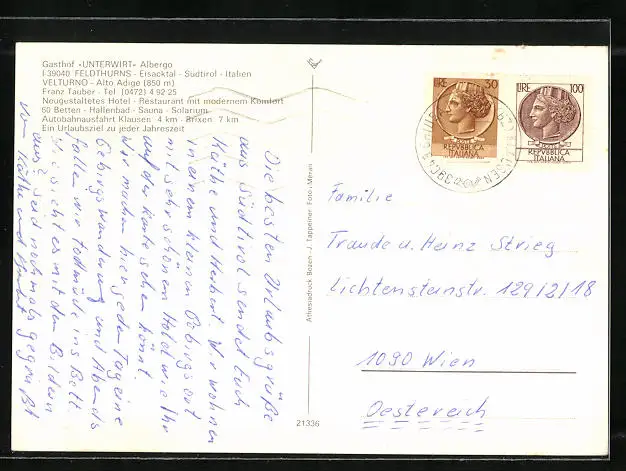 Gasthof «UNTERWIRT» Albergo
I-39040 FELDTHURNS - Eisacktal - Südtirol - Italien
VELTURNO - Alto Adige (850 m)
Franz Tauber - Tel (0472) 4 92 25
Neugestaltetes Hotel - Restaurant mit modernem Komfort
60 Betten - Hallenbad - Sauna - Solarium
Autobahnausfahrt Klausen 4 km - Brixen 7 km
Ein Urlaubsziel zu jeder Jahreszeit
Die besten Urlaubsgrüße
aus Südtirol sendet Euch
Käthe und Herbert. Wir wohnen
in einem kleinen Gebirgsort
mit sehr schönen Hotel wie Ihr
auf der Karte sehen könnt.
Wir machen hier jeden Tag eine
Gebirgswanderung und Abends
fallen wir todmüde ins Bett.
Wie sieht es mit den Bildern
aus? Seid nochmals gegrüßt
von Käthe und Herbert
Athesiadruck Bozen - J. Tappeiner Foto - Meran
21336
LIRE 50
REPVBBLICA
ITALIANA
LIRE 100
REPVBBLICA
ITALIANA
Familie
Traude u. Heinz Strieg
Lichtensteinstr. 129/2/18
1090 Wien
Oesterreich